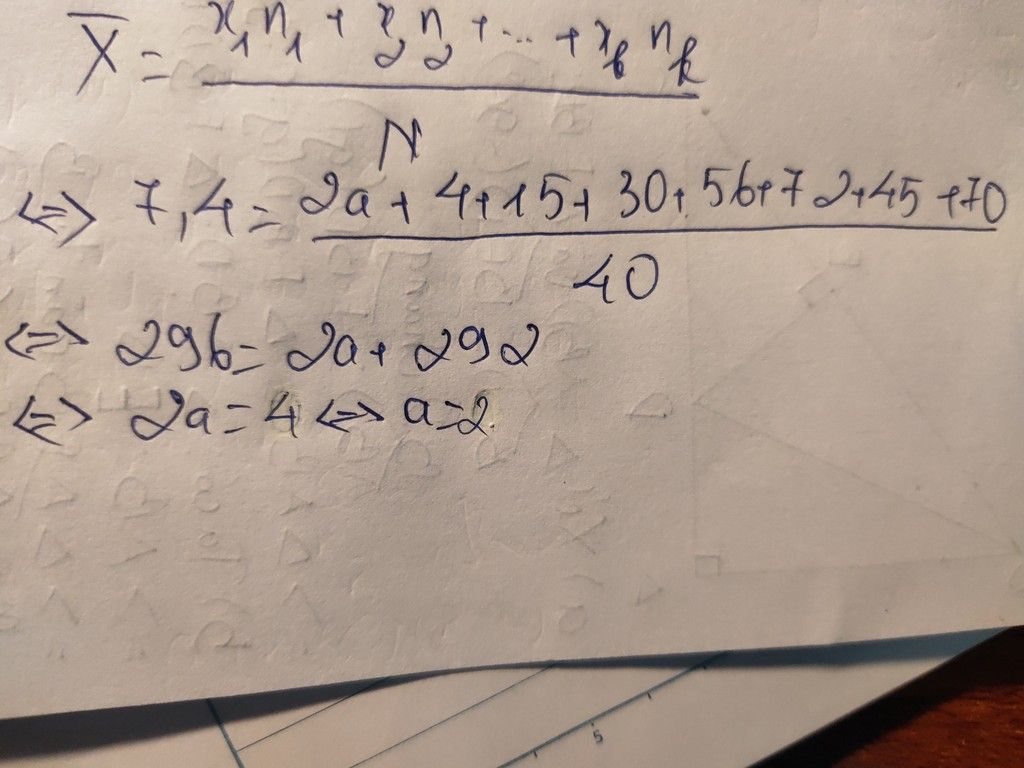 X̄ = x₁n₁ + x₂n₂ + ... + xₖnₖ
N
⇔ 7,4 = 2a + 4 + 15 + 30 + 56 + 72 + 45 + 70
40
⇔ 296 = 2a + 292
⇔ 2a = 4 ⇔ a = 2
5